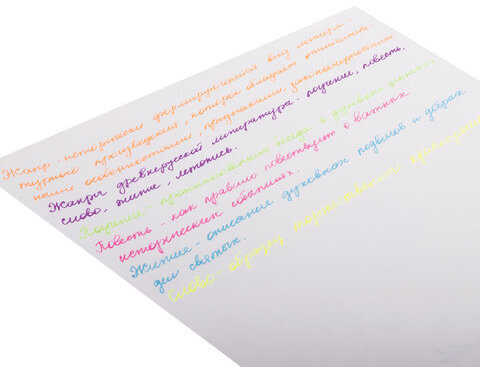 Жанр - исторически формирующийся вид литера-
турного произведения, которое обладает отличитель-
ными особенностями, признаками, закономерностями
Жанры древнерусской литературы - поучение, повесть,
слово, житие, летопись.
Поучение - проповедь о духовных
Повесть - как правило повествует о важных
исторических событиях.
Житие - описание духовных подвигов и добрых
дел святых.
Слово - образец торжественного